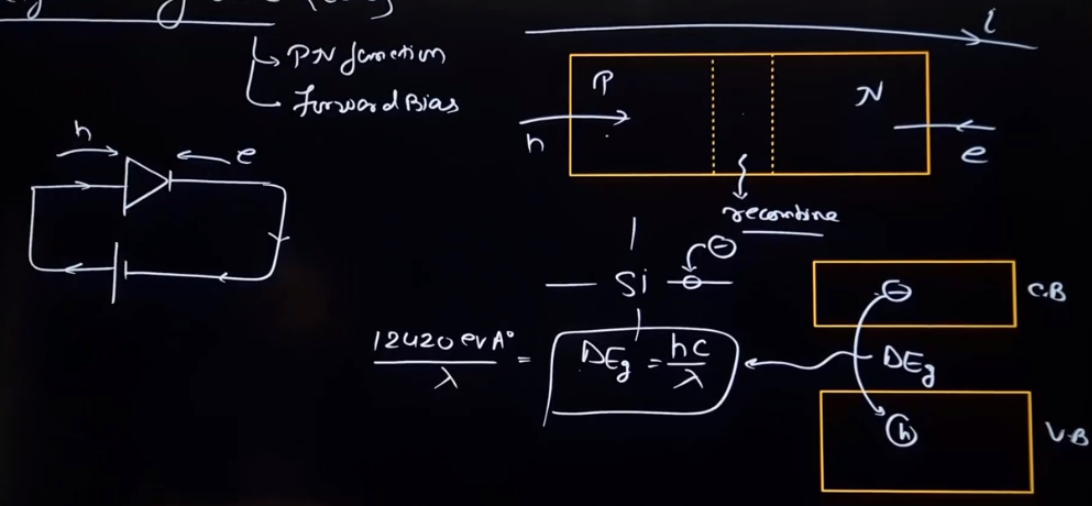 PN Junction
Forward Bias
i
P
N
h
e
h
e
recombine
Si
C.B
12420 eV A°
λ
=
DEg = hc
λ
DEg
h
V.B